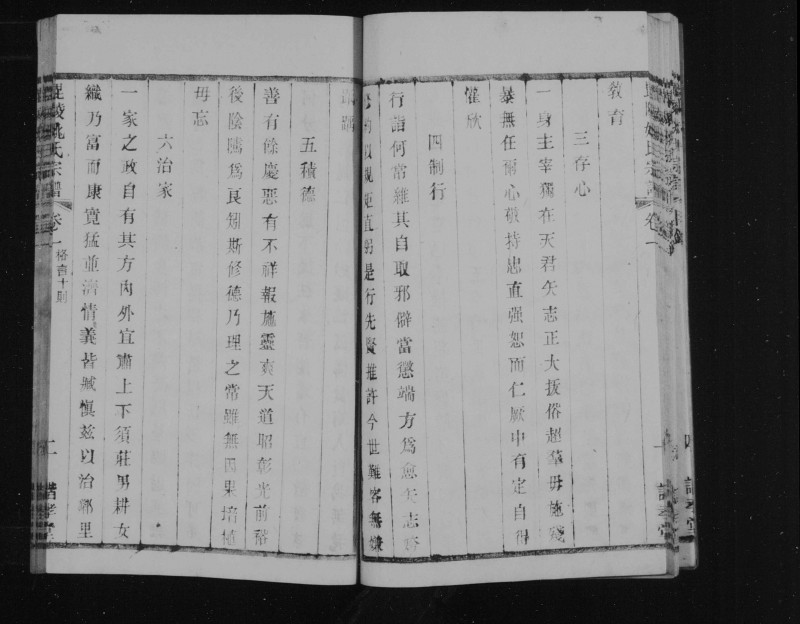 教育
三存心
一身主宰獨在天君矢志正大拔俗超羣毋施殘
暴無任爾心礙持忠直强恕而仁厥中有定自得
懽欣
四制行
行詣何常維其自取邪僻當懲端方為愈矢志
規矩直躬是行先賢推許今世難容無嫌
五積德
善有餘慶惡有不祥報施靈爽天道昭彰光前裕
後陰騭為良矧斯修德乃理之常雖無因果培植
毋忘
六治家
一家之政自有其方內外宜肅上下須莊男耕女
織乃富而康寬猛並濟情義皆臧慎玆以治鄉里
姚氏宗譜
卷一
格言十則
二